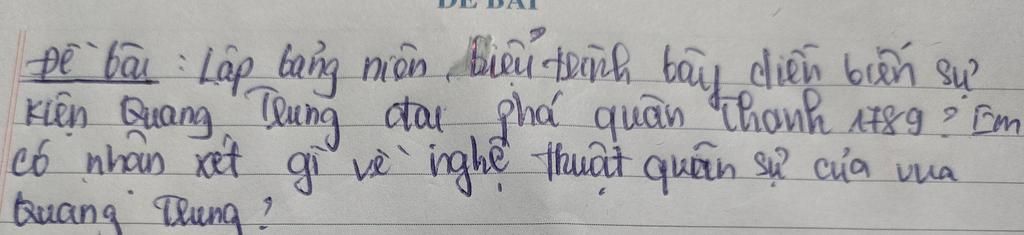 ĐỀ BÀI
Đề bài : Lập bảng niên biểu trình bày diễn biến sự
kiện Quang Trung đại phá quân Thanh 1789 ? Em
có nhận xét gì về nghệ thuật quân sự của vua
Quang Trung ?